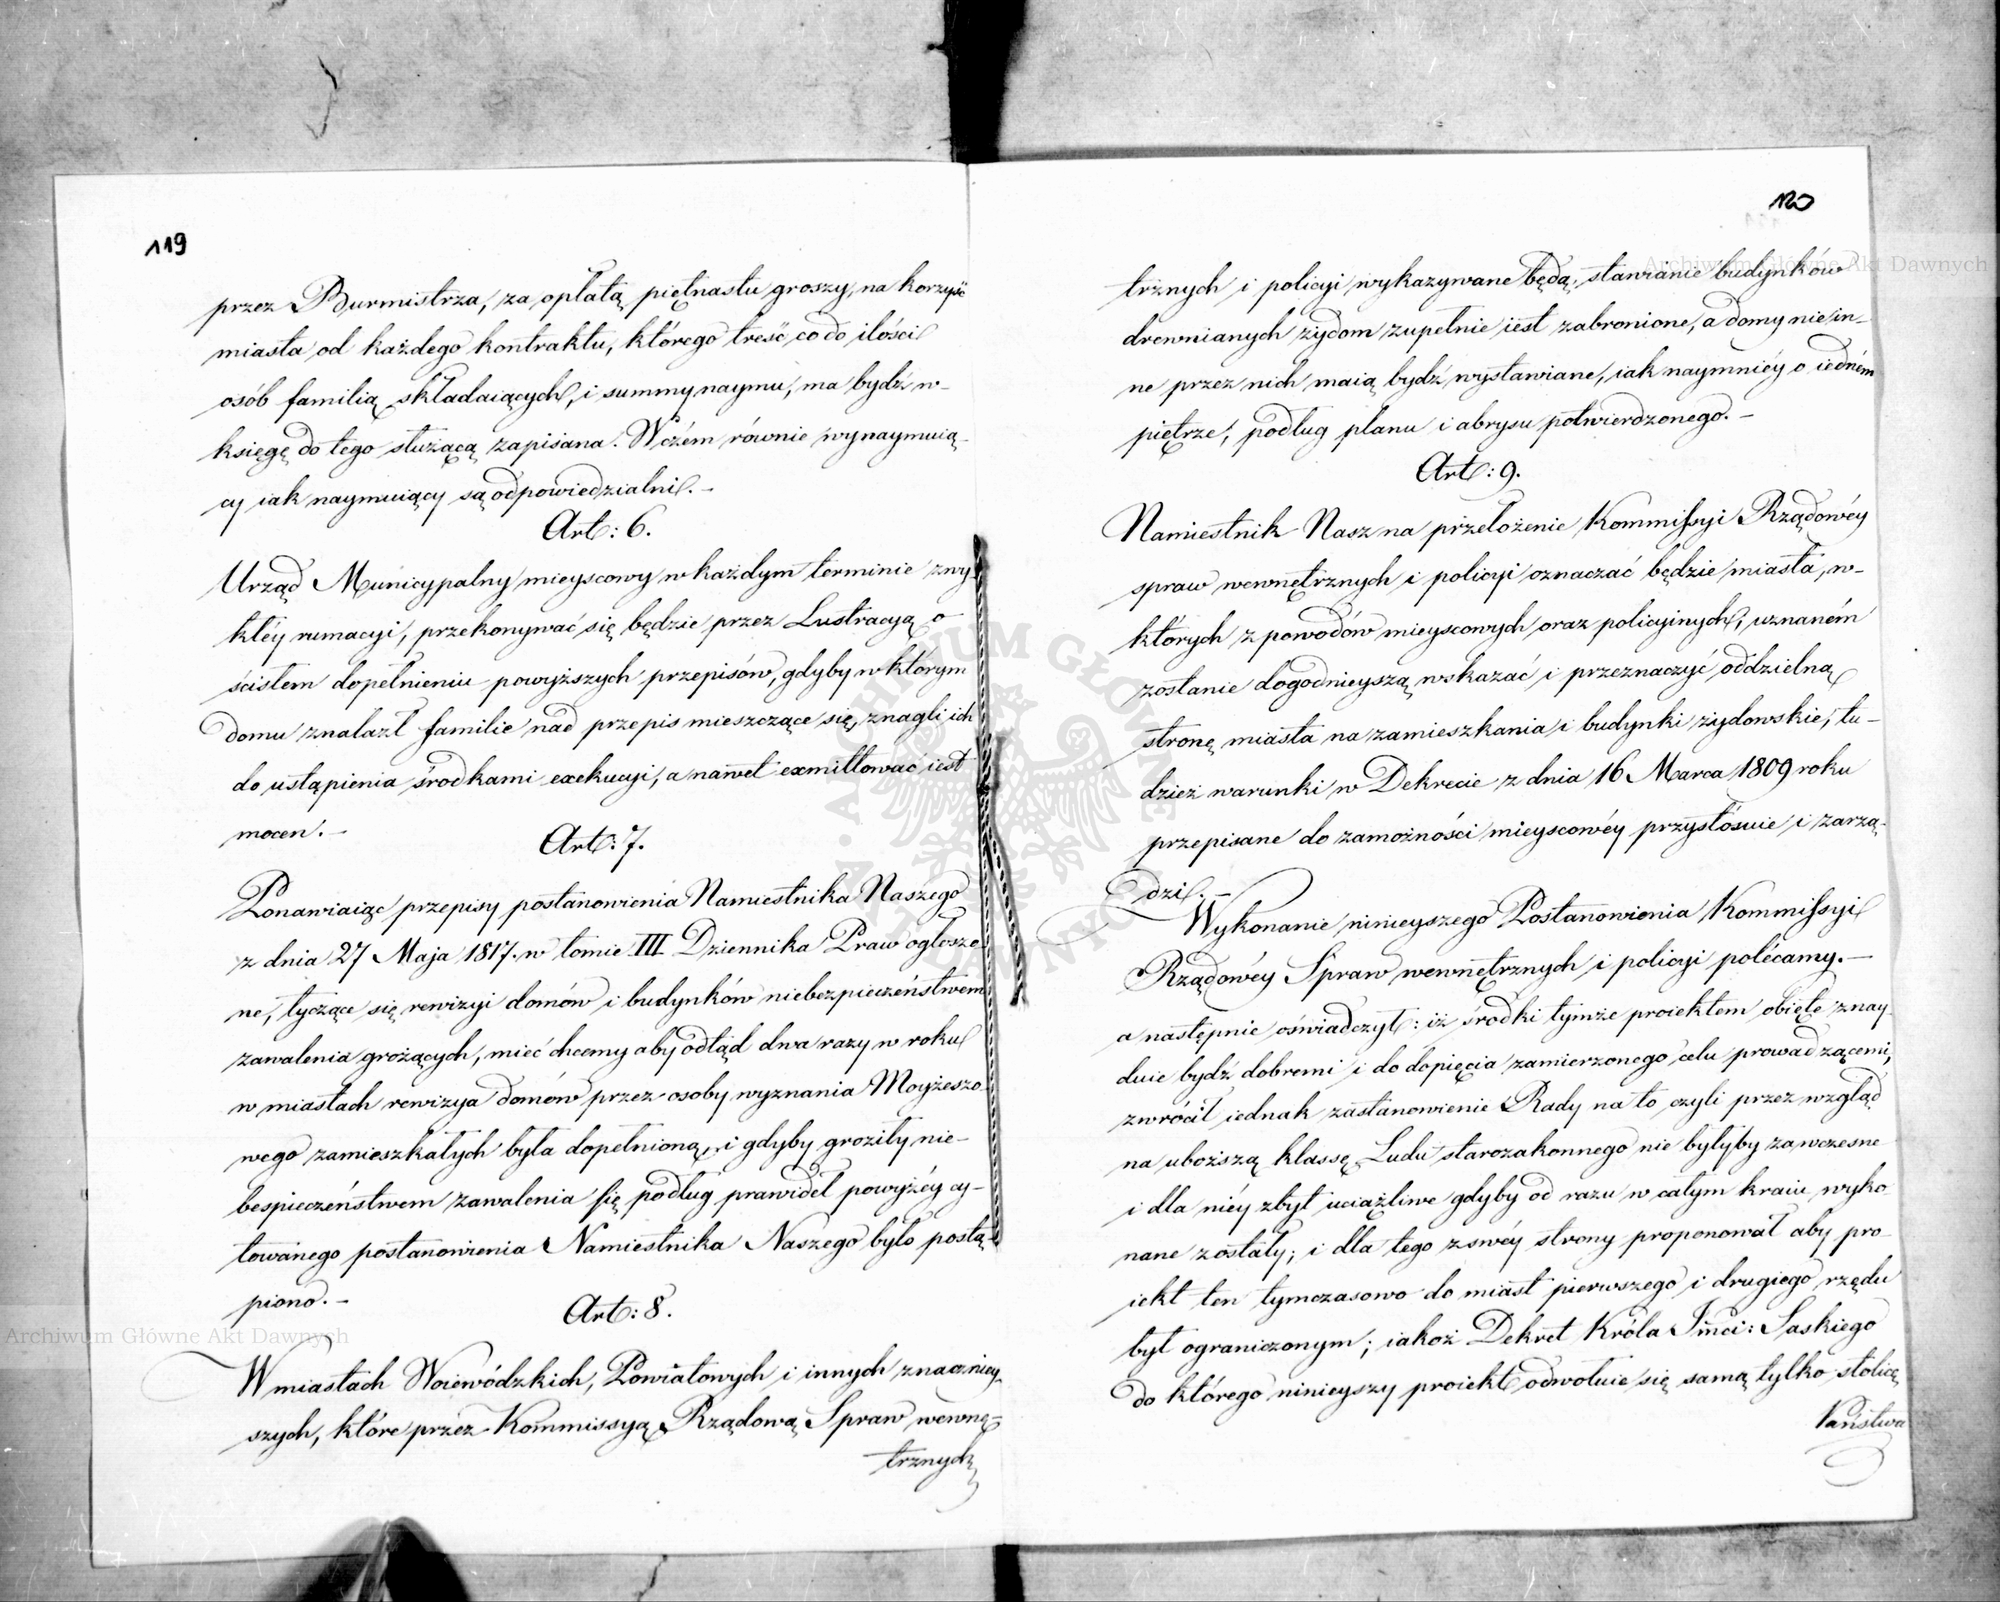 119
przez Burmistrza, za opłatą piętnastu groszy, na korzyść
miasta od każdego kontraktu, którego treść co do ilości
osób familią składaiących, i summy naymu, ma bydź w
księgę do tego służącą zapisana. W czém równie wynaymuią-
cy iak naymuiący są odpowiedzialni. –
Art: 6.
Urząd Municypalny mieyscowy w każdym terminie zwy
kłéy rumacyi, przekonywać się będzie przez Lustracyą o
ścisłem dopełnieniu powyższych przepisów, gdyby w którym
domu znalazł familie nad przepis mieszczące się, znagli ich
do ustąpienia środkami exekucyi, a nawet exmittować iest
mocen. –
Art: 7.
Ponawiaiąc przepisy postanowienia Namiestnika Naszego
z dnia 27 Maja 1817. w tomie III Dziennika Praw ogłosze
ne, tyczące się rewizyi domów i budynków niebezpieczeństwem
zawalenia grożących, mieć chcemy aby odtąd dwa razy w roku
w miastach rewizya domów przez osoby wyznania Moyżeszo
wego zamieszkałych była dopełnioną, i gdyby groziły nie-
bespieczeństwem zawalenia się podług prawideł powyżéy cy-
towanego postanowienia Namiestnika Naszego było postą-
piono. –
Art: 8.
W miastach Woiewódzkich, Powiatowych i innych znaczniey-
szych, które przez Kommissyą Rządową Spraw wewnę-
trznych
120
trznych i policyi wykazywane będą, stawianie budynków
drewnianych żydom zupełnie iest zabronione, a domy nie in-
ne przez nich maią bydź wystawiane, iak naymniéy o iedném
piętrze, podług planu i abrysu potwierdzonego. –
Art: 9.
Namiestnik Nasz na przełożenie Kommissyi Rządowéy
spraw wewnętrznych i policyi oznaczać będzie miasta, w-
których z powodów mieyscowych oraz policyinych, uznaném
zostanie dogodnieyszą wskazać i przeznaczyć oddzielną
stronę miasta na zamieszkania i budynki żydowskie, tu-
dzież warunki w Dekrecie z dnia 16 Marca 1809 roku
przepisane do zamożności mieyscowéy przystosuie i zarzą-
dzi. –
Wykonanie ninieyszego Postanowienia Kommissyi
Rządowéy Spraw wewnętrznych i policyi polécamy. –
a następnie oświadczył: iż środki tymże proiektem obięte znay-
duie bydź dobremi i do dopięcia zamierzonego celu prowadzącemi,
zwrócił iednak zastanowienie Rady na to, czyli przez wzgląd
na uboższą klassę Ludu starozakonnego nie byłyby zawczesne
i dla niéy zbyt uciążliwe gdyby od razu w całym kraiu wyko
nane zostały; i dla tego z swéy strony proponował aby pro-
iekt ten tymczasowo do miast pierwszego i drugiego rzędu
był ograniczonym; iakoż Dekret Króla Jmci: Saskiego
do którego ninieyszy proiekt odwołuie się samą tylko stolicę
Państwa
Archiwum Główne Akt Dawnych
Archiwum Główne Akt Dawnych
ARCHIWUM GŁÓWNE AKT DAWNYCH